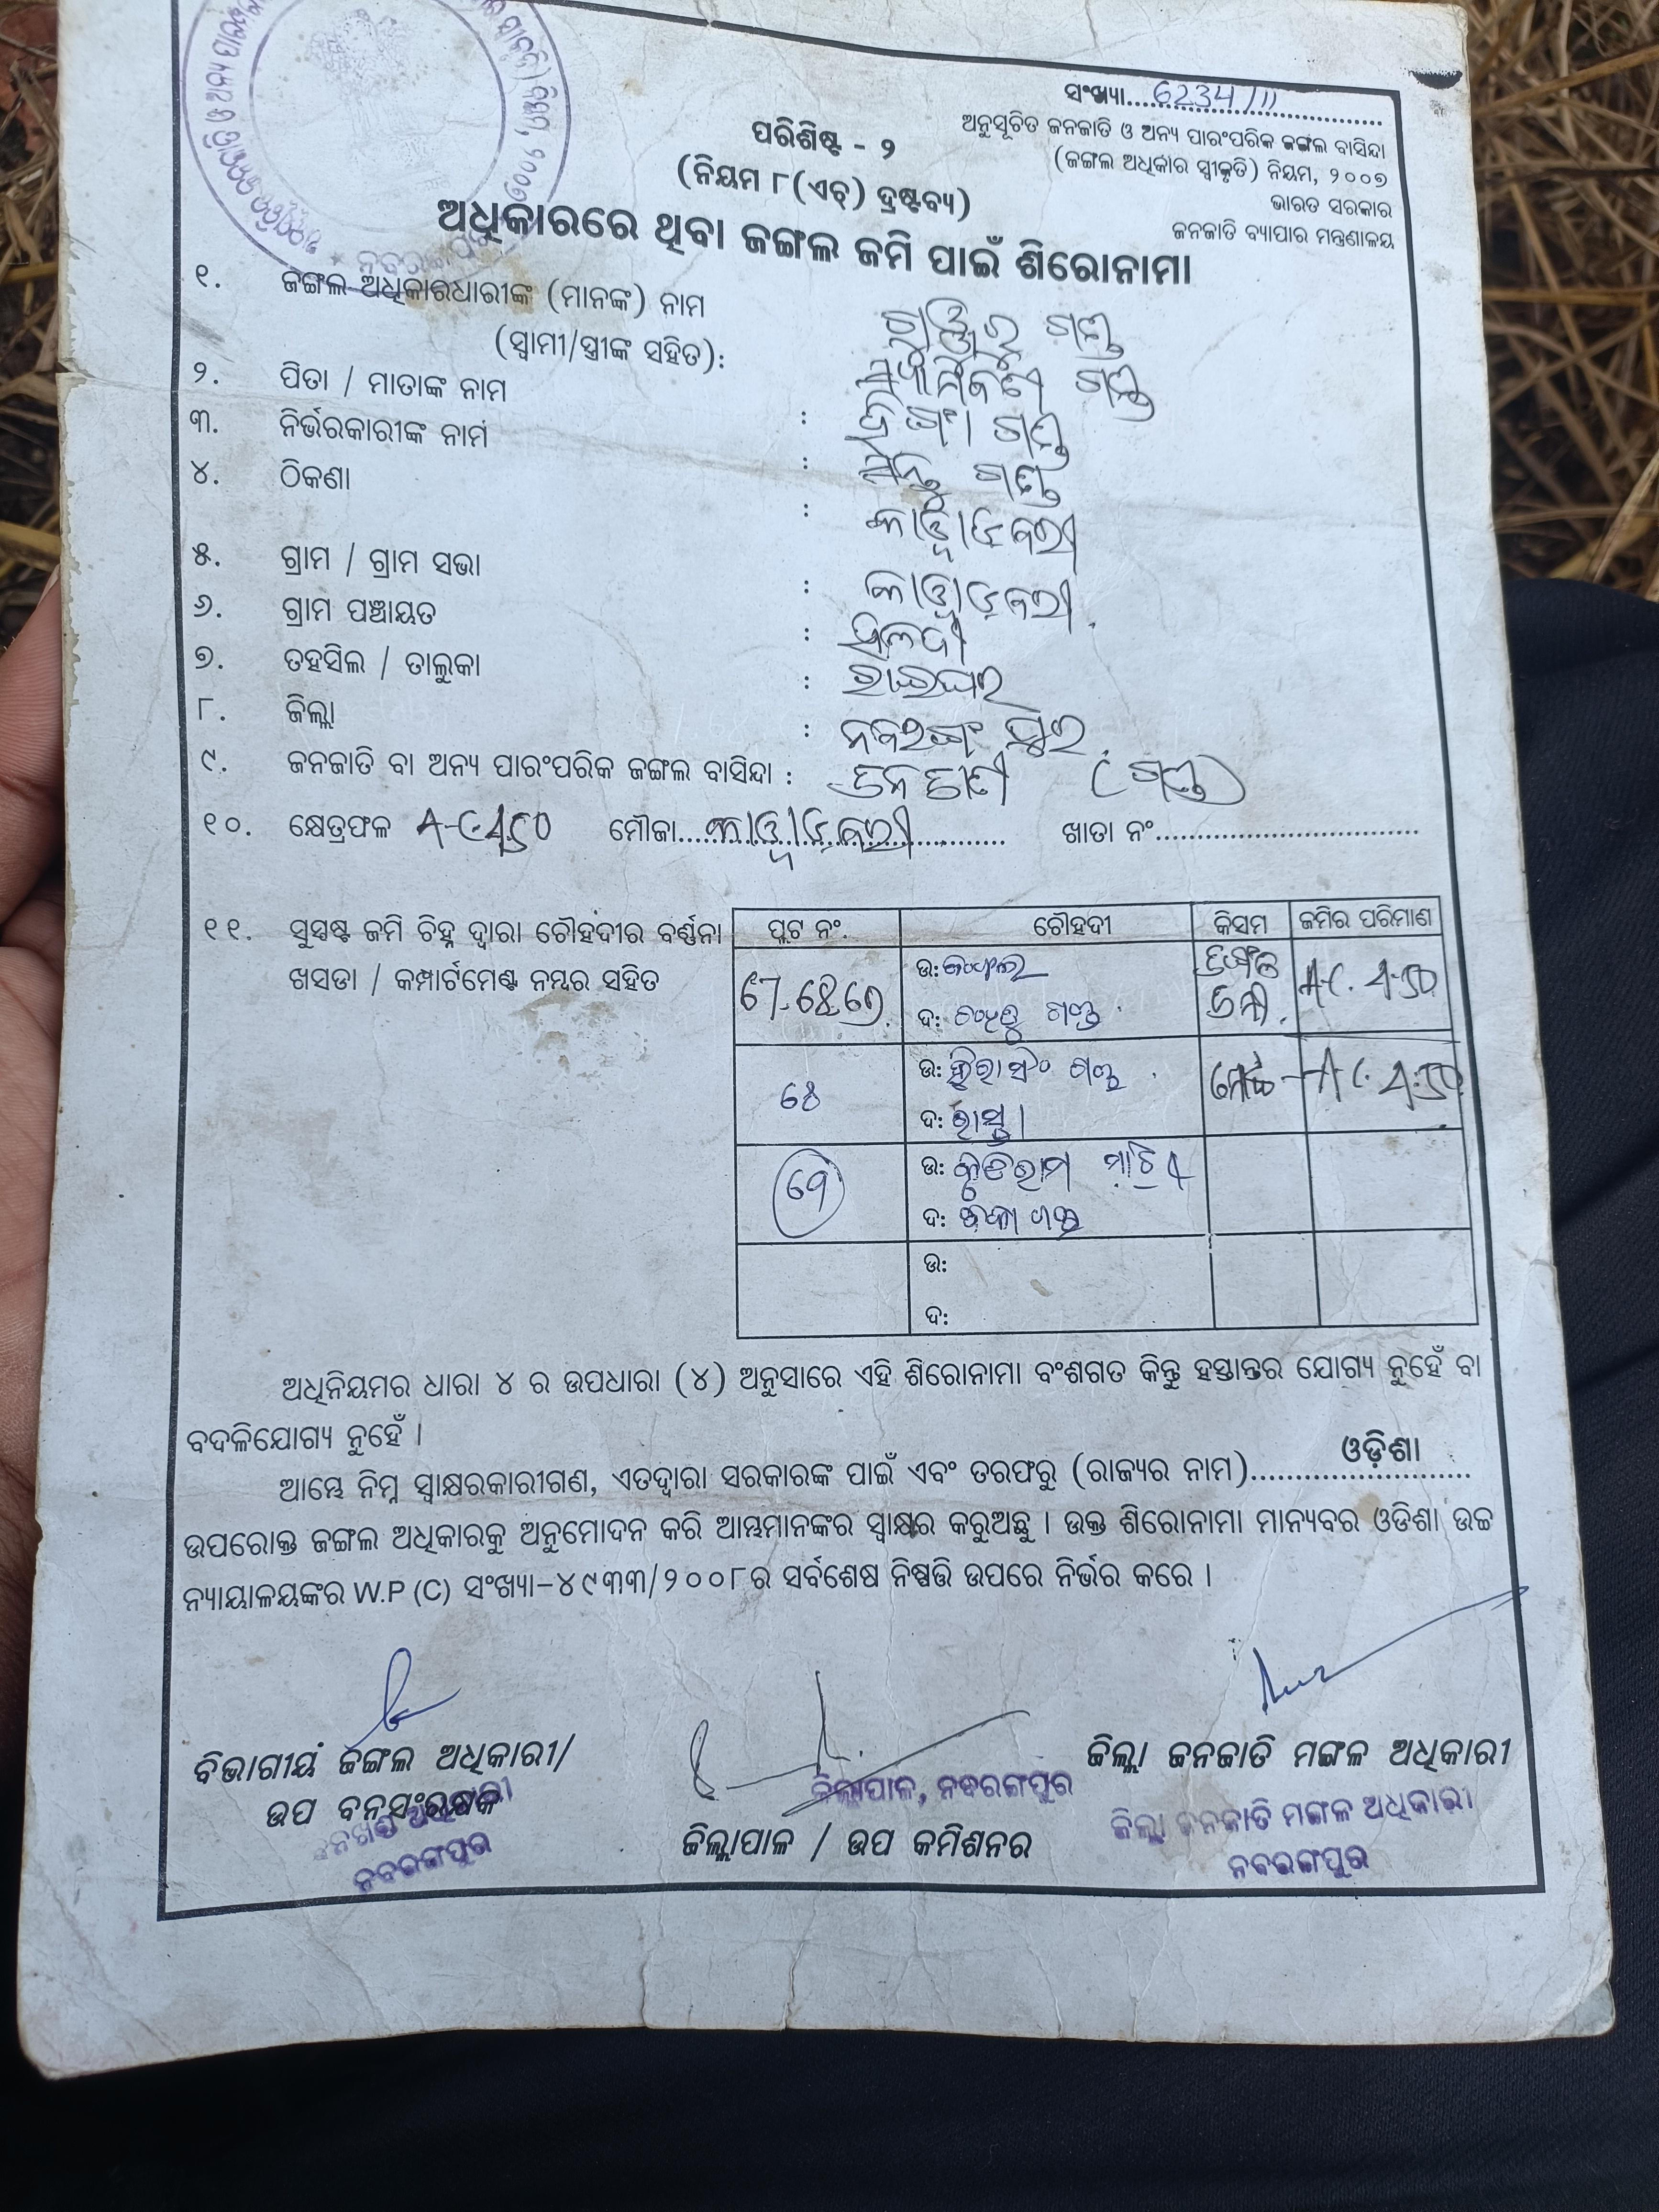 ସଂଖ୍ୟା....6234/11....
ଅନୁସୂଚିତ ଜନଜାତି ଓ ଅନ୍ୟ ପାରଂପରିକ ଜଙ୍ଗଲ ବାସିନ୍ଦା
(ଜଙ୍ଗଲ ଅଧିକାର ସ୍ୱୀକୃତି) ନିୟମ, ୨୦୦୭
ଭାରତ ସରକାର
ଜନଜାତି ବ୍ୟାପାର ମନ୍ତ୍ରଣାଳୟ
ପରିଶିଷ୍ଟ - ୨
(ନିୟମ ୮(ଏଚ୍) ଦ୍ରଷ୍ଟବ୍ୟ)
ଅଧିକାରରେ ଥିବା ଜଙ୍ଗଲ ଜମି ପାଇଁ ଶିରୋନାମା
୧. ଜଙ୍ଗଲ ଅଧିକାରଧାରୀଙ୍କ (ମାନଙ୍କ) ନାମ
(ସ୍ୱାମୀ/ସ୍ତ୍ରୀଙ୍କ ସହିତ): ଗଣ୍ଡ
୨. ପିତା / ମାତାଙ୍କ ନାମ : ଗଣ୍ଡ
୩. ନିର୍ଭରକାରୀଙ୍କ ନାମ : ଗଣ୍ଡ
୪. ଠିକଣା :
୫. ଗ୍ରାମ / ଗ୍ରାମ ସଭା :
୬. ଗ୍ରାମ ପଞ୍ଚାୟତ :
୭. ତହସିଲ / ତାଲୁକା : ରାଇଘର
୮. ଜିଲ୍ଲା : ନବରଙ୍ଗପୁର
୯. ଜନଜାତି ବା ଅନ୍ୟ ପାରଂପରିକ ଜଙ୍ଗଲ ବାସିନ୍ଦା : (ଗଣ୍ଡ)
୧୦. କ୍ଷେତ୍ରଫଳ A-C-4.50 ମୌଜା............ ଖାତା ନଂ............
୧୧. ସୁସ୍ପଷ୍ଟ ଜମି ଚିହ୍ନ ଦ୍ୱାରା ଚୌହଦୀର ବର୍ଣ୍ଣନା
ଖସଡା / କମ୍ପାର୍ଟମେଣ୍ଟ ନମ୍ବର ସହିତ
ପ୍ଲଟ ନଂ. ଚୌହଦୀ କିସମ ଜମିର ପରିମାଣ
67-68,69 ଉ: ଜଙ୍ଗଲ A-C. 4-50
ଦ: ଗଣ୍ଡ
68 ଉ: ହିରାସିଂ ଗଣ୍ଡ ମୋଟ - A-C. 4.50
ଦ: ରାସ୍ତା
ଉ:
ଦ:
ଉ:
ଦ:
ଅଧିନିୟମର ଧାରା ୪ ର ଉପଧାରା (୪) ଅନୁସାରେ ଏହି ଶିରୋନାମା ବଂଶଗତ କିନ୍ତୁ ହସ୍ତାନ୍ତର ଯୋଗ୍ୟ ନୁହେଁ ବା
ବଦଳିଯୋଗ୍ୟ ନୁହେଁ ।
ଆମ୍ଭେ ନିମ୍ନ ସ୍ୱାକ୍ଷରକାରୀଗଣ, ଏତଦ୍ୱାରା ସରକାରଙ୍କ ପାଇଁ ଏବଂ ତରଫରୁ (ରାଜ୍ୟର ନାମ)....ଓଡ଼ିଶା....
ଉପରୋକ୍ତ ଜଙ୍ଗଲ ଅଧିକାରକୁ ଅନୁମୋଦନ କରି ଆମ୍ଭମାନଙ୍କର ସ୍ୱାକ୍ଷର କରୁଅଛୁ । ଉକ୍ତ ଶିରୋନାମା ମାନ୍ୟବର ଓଡିଶା ଉଚ୍ଚ
ନ୍ୟାୟାଳୟଙ୍କର W.P (C) ସଂଖ୍ୟା-୪୯୩୩/୨୦୦୮ର ସର୍ବଶେଷ ନିଷ୍ପତ୍ତି ଉପରେ ନିର୍ଭର କରେ ।
ବିଭାଗୀୟ ଜଙ୍ଗଲ ଅଧିକାରୀ/
ଉପ ବନସଂରକ୍ଷକ
ନବରଙ୍ଗପୁର
ଜିଲ୍ଲାପାଳ, ନବରଙ୍ଗପୁର
ଜିଲ୍ଲାପାଳ / ଉପ କମିଶନର
ଜିଲ୍ଲା ଜନଜାତି ମଙ୍ଗଳ ଅଧିକାରୀ
ଜିଲ୍ଲା ଜନଜାତି ମଙ୍ଗଳ ଅଧିକାରୀ
ନବରଙ୍ଗପୁର